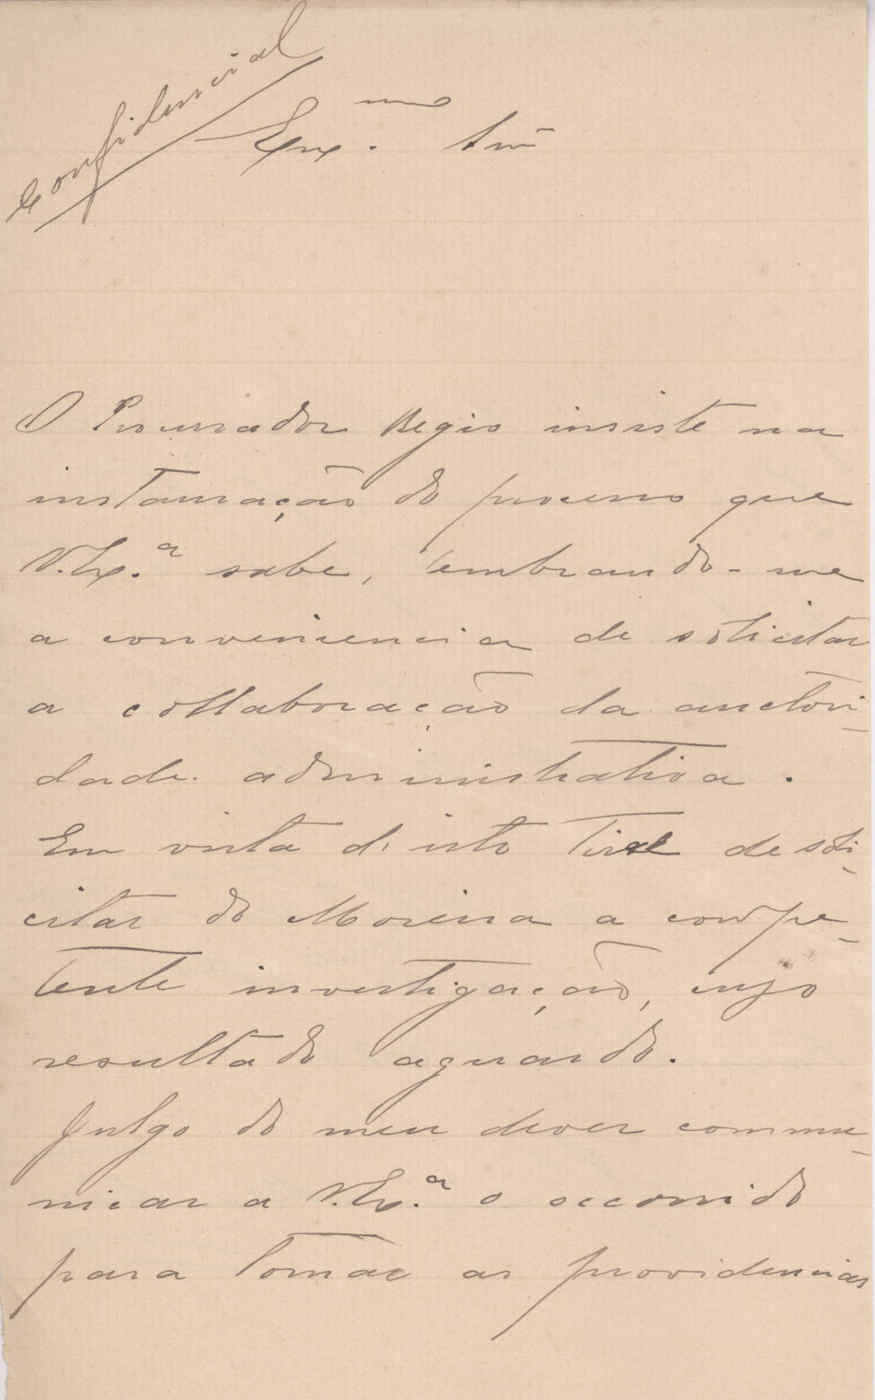 Confidencial
Ex.mo Snr
O Procurador Regio insiste na
instauração do processo que
V. Ex.a sabe, lembrando-me
a conveniencia de solicitar
a collaboração da auctori-
dade administrativa.
Em vista d'isto tive de soli-
citar do Moreira a compe-
tente investigação, cujo
resultado aguardo.
Julgo do meu dever commu-
nicar a V. Ex.a o occorrido
para tomar as providencias